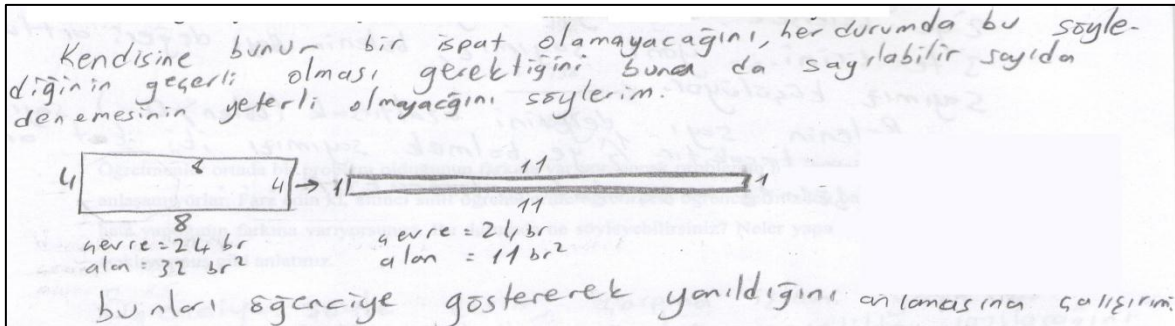 Kendisine bunun bir ispat olamayacağını, her durumda bu söyle-
diğinin geçerli olması gerektiğini buna da sayılabilir sayıda
denemesinin yeterli olmayacağını söylerim.
8 11
4 4 → 1 1
8 11
çevre = 24 br çevre = 24 br
alan = 32 br² alan = 11 br²
bunları öğrenciye göstererek yanıldığını anlamasına çalışırım